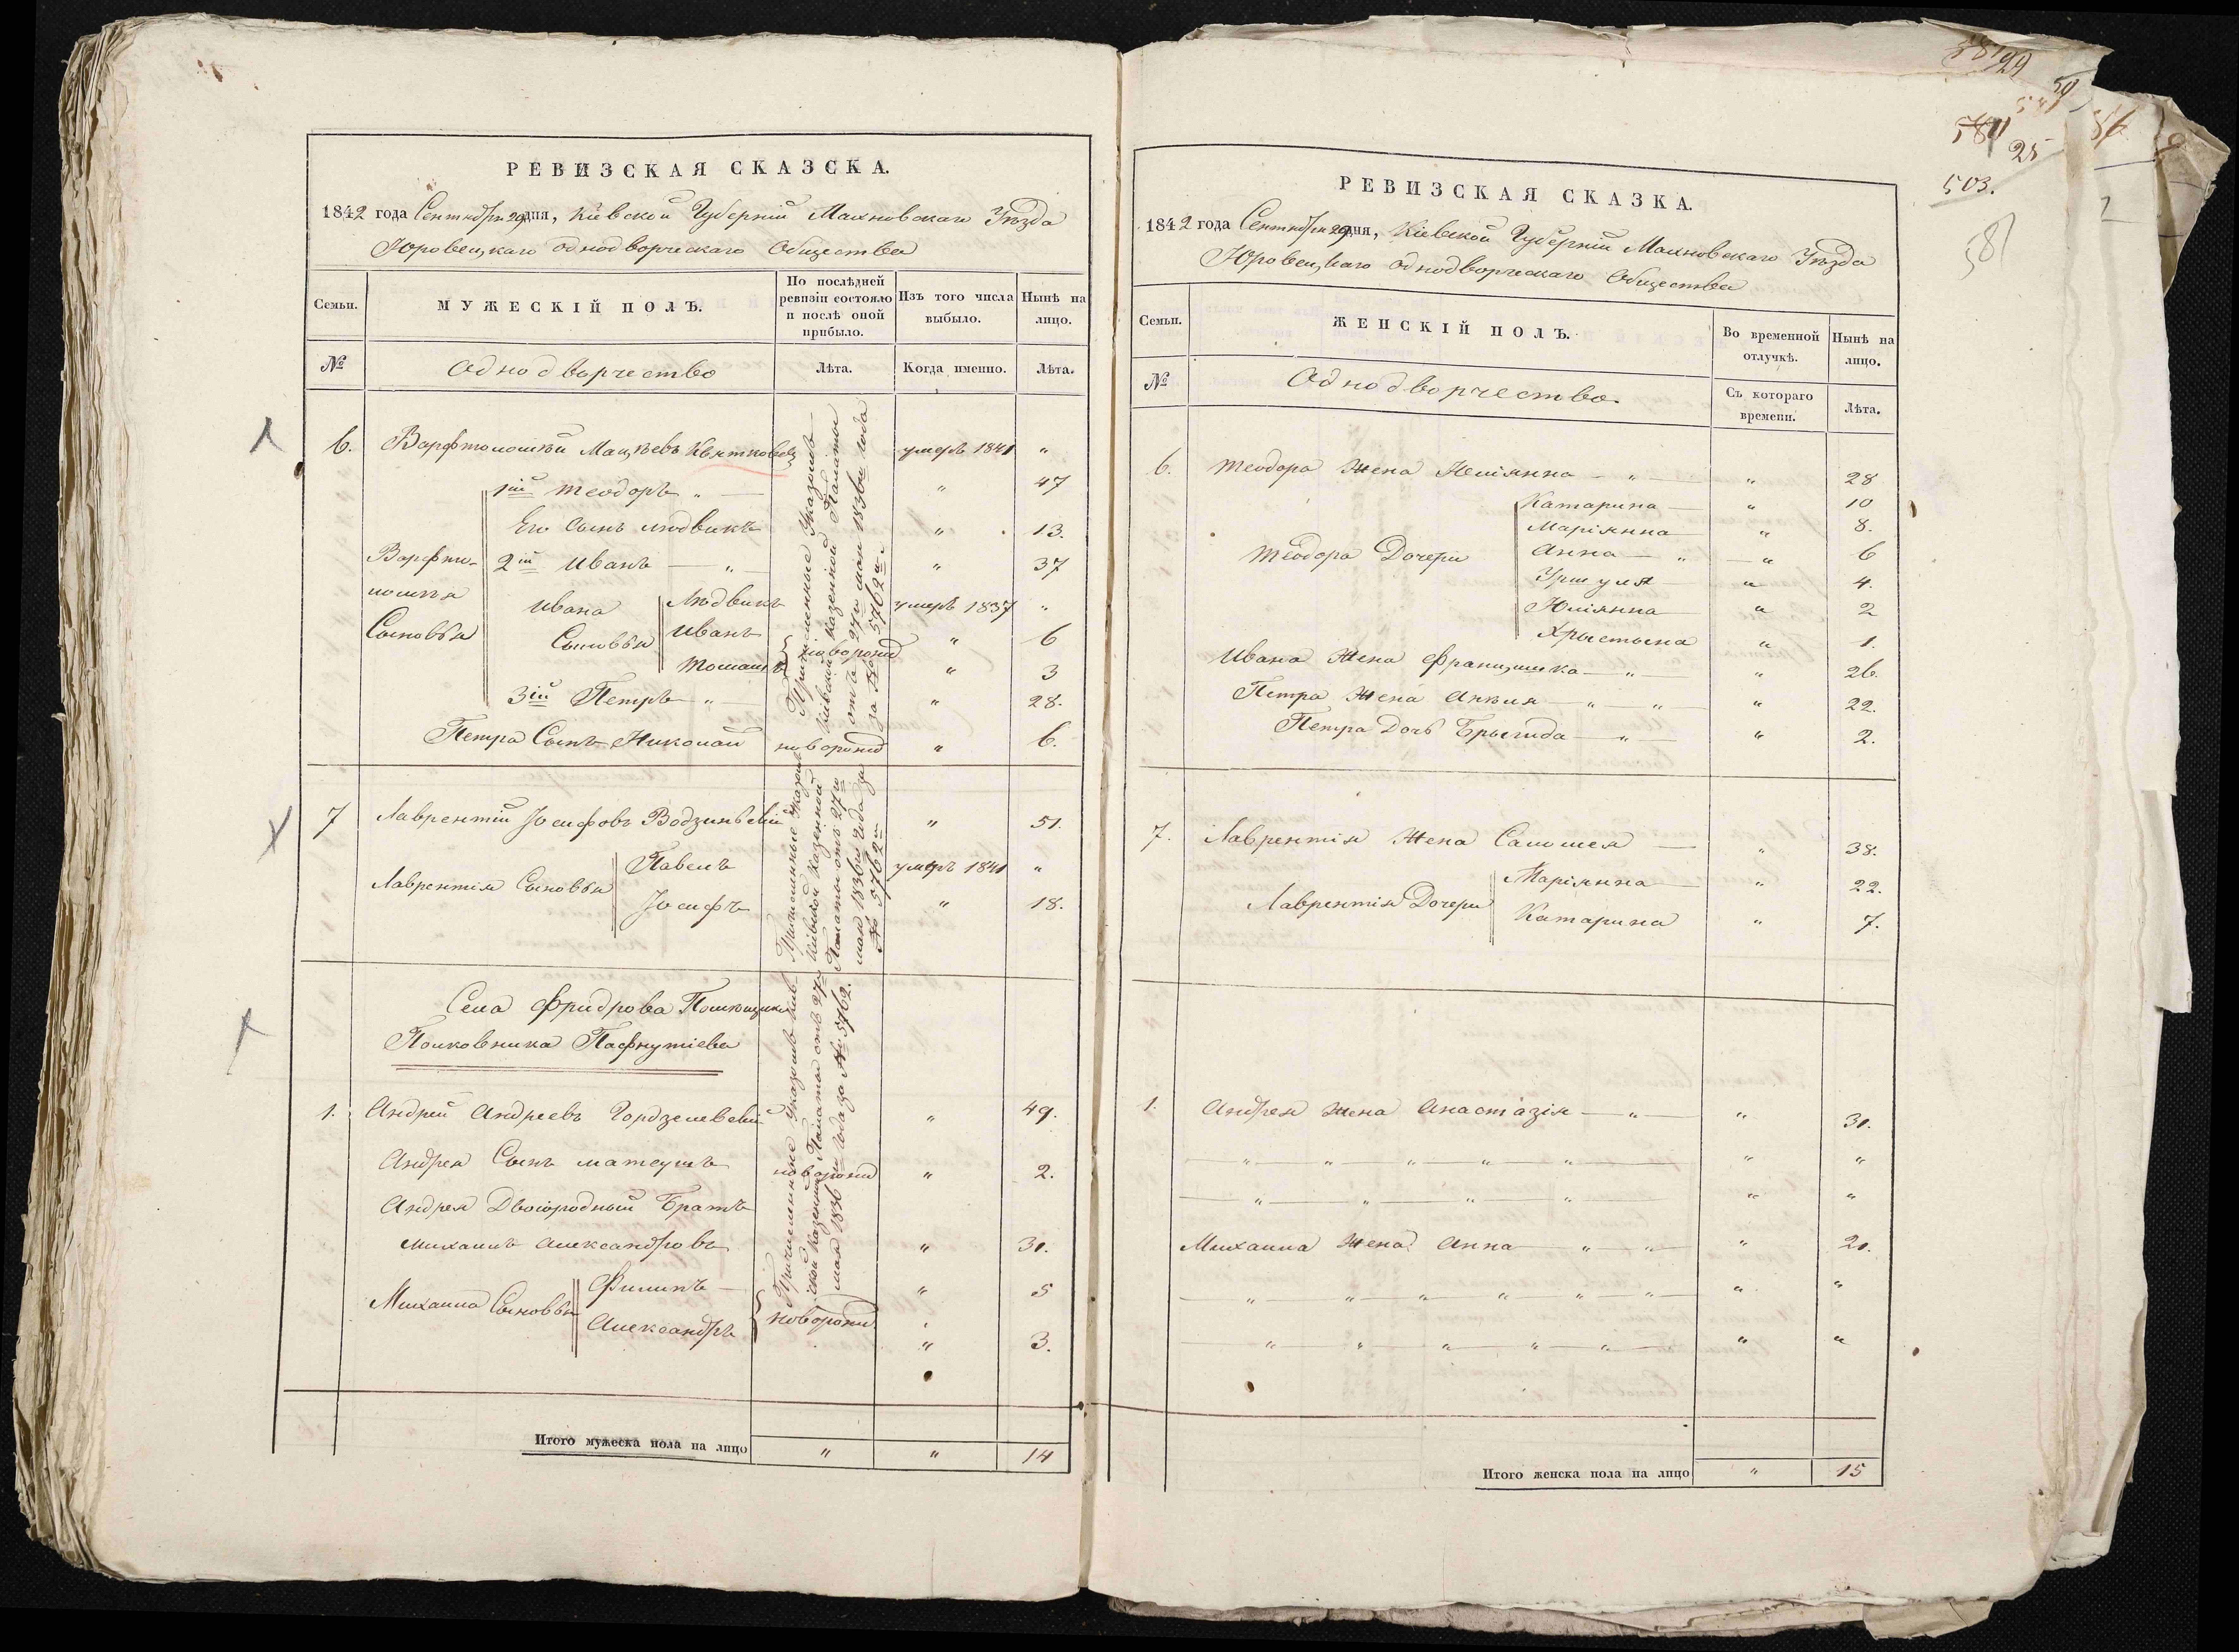 РЕВИЗСКАЯ СКАЗСКА.
1842 года Сентября 29 дня, Кіевской Губерніи Махновскаго Уѣзда
Юровецкаго однодворческаго Общества
Семьи.
МУЖЕСКІЙ ПОЛЪ.
По послѣдней ревизіи состояло и послѣ оной прибыло.
Изъ того числа выбыло.
Нынѣ на лицо.
№
Однодворчество
Лѣта.
Когда именно.
Лѣта.
6. Варфтоломѣй Мацѣевъ Квятковскій умеръ 1841 "
1й Теодоръ " " 47
Его сынъ Людвикъ " 13.
Варфто- 2й Иванъ " " 37
ломѣя Ивана Людвикъ умеръ 1837 "
Сыновья Сыновья Иванъ " 6
Томашъ новорожд " 3
3й Петръ " " 28.
Петра Сынъ Николай новорожд " 6.
Причисленные Указомъ
Кіевской Казенной Палаты
отъ 27го мая 1836го года
за № 5762м.
7 Лаврентій Іосифовъ Водзинскій " 51.
Лаврентія Сыновья Павелъ умеръ 1841 "
Іосифъ " 18.
Причисленные Указомъ
Кіевской Казенной
Палаты отъ 27го
мая 1836го года за
№ 5762м
Села Фридрова Помѣщика
Полковника Пафнутіева
1. Андрей Андреевъ Гордзелевскій " 49.
Андрея Сынъ Матеушъ новорожд " 2.
Андрея Двоюродный Братъ
Михаилъ Александровъ " 30.
Михаила Сыновья Филипъ " 5
Александръ новорожд " 3.
Причисленные Указомъ Кіев-
ской Казенной Палаты отъ 27го
мая 1836го года за № 5762.
Итого мужеска пола на лицо " " 14
РЕВИЗСКАЯ СКАЗКА.
1842 года Сентября 29 дня, Кіевской Губерніи Махновскаго Уѣзда
Юровецкаго однодворческаго Общества
Семьи.
ЖЕНСКІЙ ПОЛЪ.
Во временной отлучкѣ.
Нынѣ на лицо.
№
Однодворчество
Съ котораго времени.
Лѣта.
6. Теодора Жена Юліянна " " 28
Катарина " 10
Маріянна " 8.
Теодора Дочери Анна " " 6
Уршуля " 4.
Юліянна " 2
Хрыстына " 1.
Ивана Жена Францишка " " 26.
Петра Жена Анеля " " " 22.
Петра Дочь Брыгида " " 2.
7. Лаврентія Жена Саломея " 38.
Лаврентія Дочери Маріянна " 22.
Катарина " 7.
1. Андрея Жена Анастазія " " 30.
" " " " " " "
" " " " " "
Михаила Жена Анна " " " 20.
" " " " " " " "
" " " " " " "
Итого женска пола на лицо " 15
503.
25
58